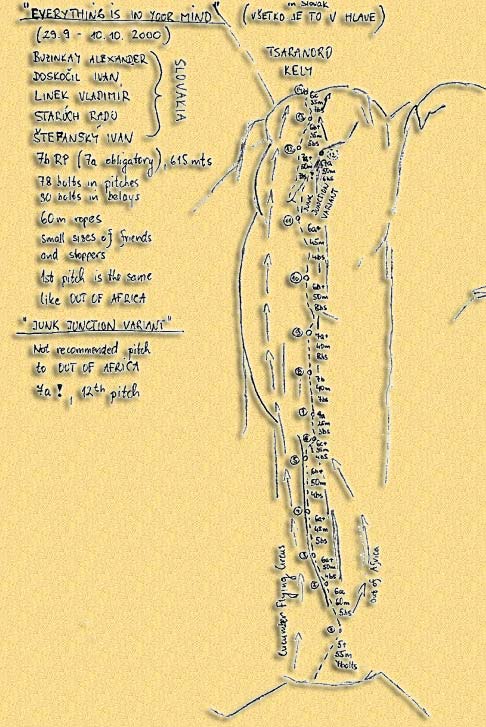 "EVERYTHING IS IN YOUR MIND"
in Slovak
(VŠETKO JE TO V HLAVE)
(29.9 - 10.10. 2000)
BUZINKAY ALEXANDER
DOSKOČIL IVAN
LINEK VLADIMÍR
STARÚCH RADO
ŠTEFANSKÝ IVAN
SLOVAKIA
7b RP (7a obligatory), 615 mts
78 bolts in pitches
30 bolts in belays
60 m ropes
small sizes of friends
and stoppers
1st pitch is the same
like OUT OF AFRICA
"JUNK JUNCTION VARIANT"
Not recommended pitch
to OUT OF AFRICA
7a !, 12th pitch
TSARANORO
KELY
6c
35m
JUNK
JUNCTION
VARIANT
6a+
45m
4bs
6b+
50m
8bs
7a+
40m
8bs
7b
40m
7bs
6c+
6b+
50m
4bs
6a+
45m
5bs
6a+
50m
4bs
6a
60m
5bs
5+
55m
7bolts
Cucumber Flying Circus
Out of Africa